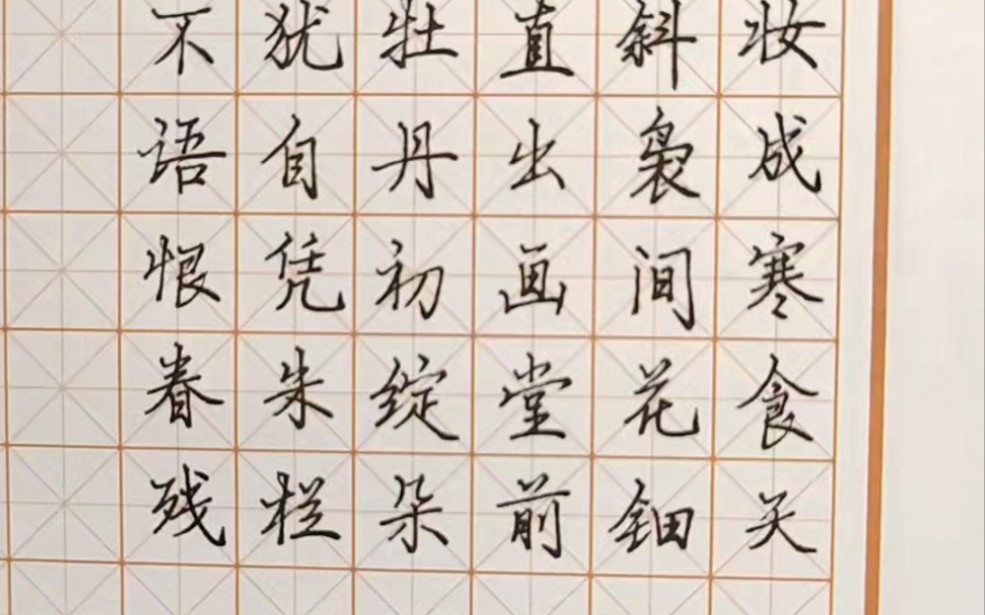 妆成寒食天
斜袅间花钿
直出画堂前
牡丹初绽朵
犹自凭朱栏
不语恨春残